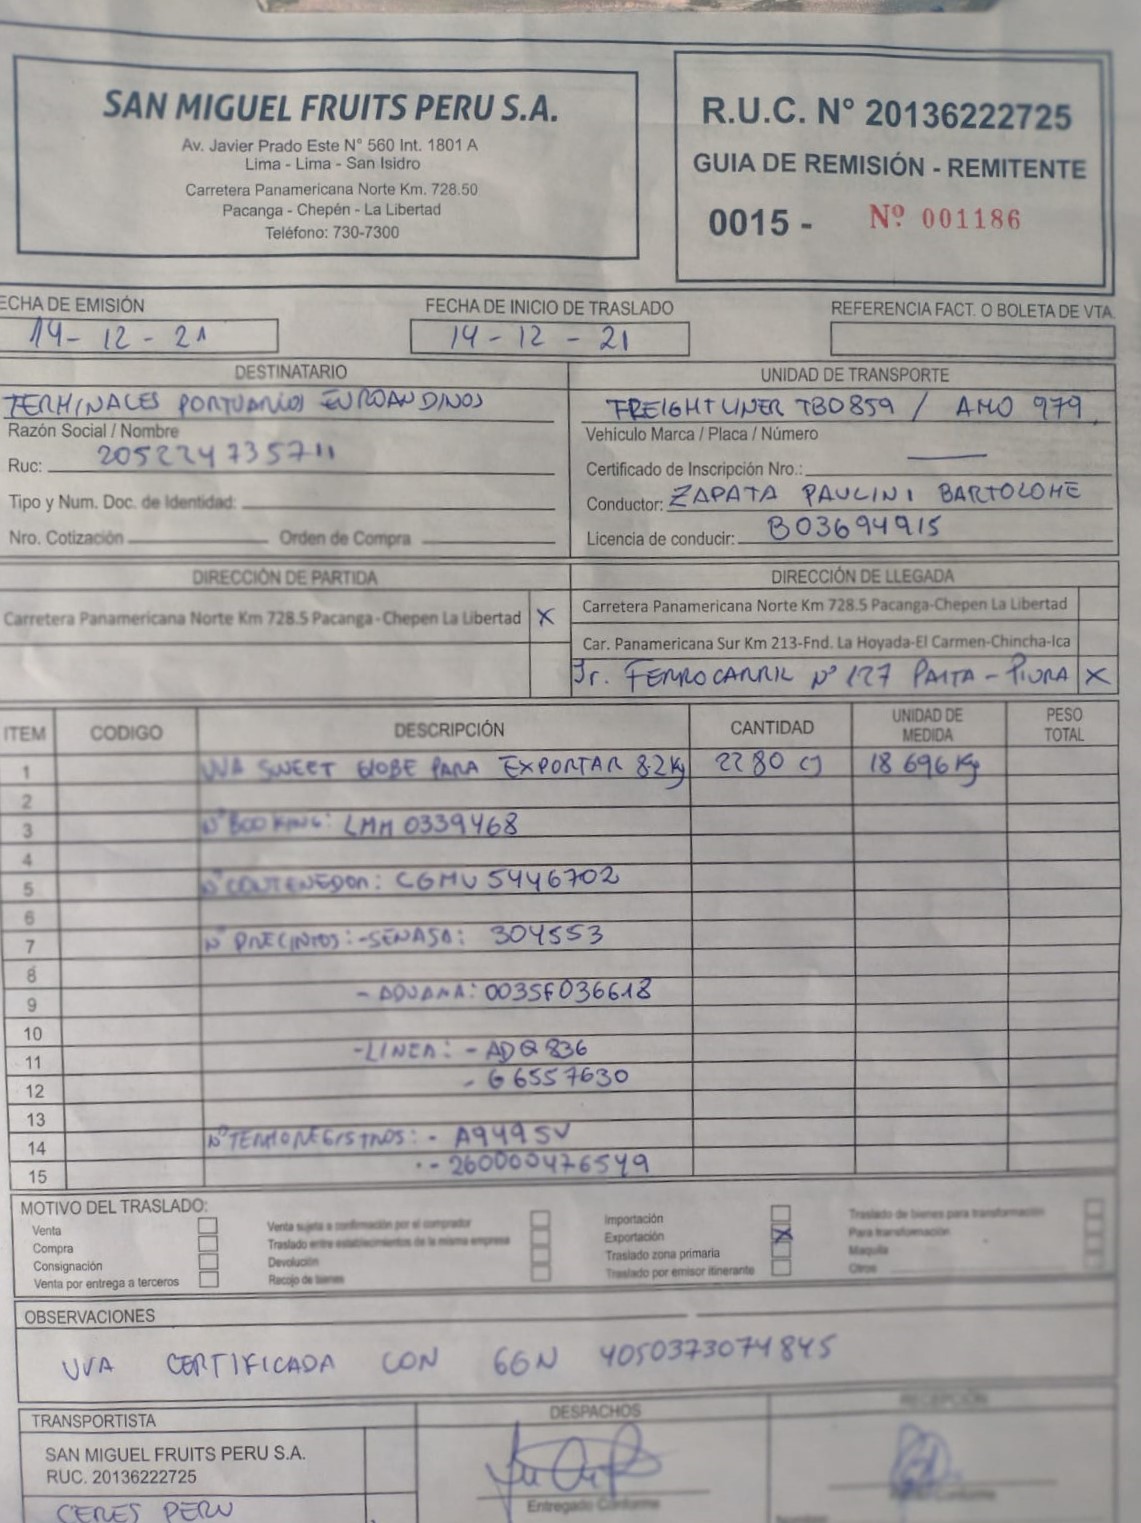 SAN MIGUEL FRUITS PERU S.A.
Av. Javier Prado Este N° 560 Int. 1801 A
Lima - Lima - San Isidro
Carretera Panamericana Norte Km. 728.50
Pacanga - Chepén - La Libertad
Teléfono: 730-7300
R.U.C. N° 20136222725
GUIA DE REMISIÓN - REMITENTE
0015 - Nº 001186
ECHA DE EMISIÓN
14 - 12 - 21
FECHA DE INICIO DE TRASLADO
14 - 12 - 21
REFERENCIA FACT. O BOLETA DE VTA.
DESTINATARIO
TERMINALES PORTUARIOS EUROANDINOS
Razón Social / Nombre
Ruc: 20522473571
Tipo y Num. Doc. de Identidad:
Nro. Cotización Orden de Compra
UNIDAD DE TRANSPORTE
FREIGHTLINER TBO859 / AMO 979
Vehículo Marca / Placa / Número
Certificado de Inscripción Nro.:
Conductor: ZAPATA PAULINI BARTOLOME
Licencia de conducir: B03694915
DIRECCIÓN DE PARTIDA
Carretera Panamericana Norte Km 728.5 Pacanga-Chepen La Libertad X
DIRECCIÓN DE LLEGADA
Carretera Panamericana Norte Km 728.5 Pacanga-Chepen La Libertad
Car. Panamericana Sur Km 213-Fnd. La Hoyada-El Carmen-Chincha-Ica
Jr. FERROCARRIL N° 127 PAITA - PIURA X
ITEM CODIGO DESCRIPCIÓN CANTIDAD UNIDAD DE MEDIDA PESO TOTAL
1 UVA SWEET GLOBE PARA EXPORTAR 8.2 Kg 2280 CJ 18 696 Kg
2
3 N° BOOKING: LMM 0339468
4
5 N° CONTENEDOR: CGMU 5446702
6
7 N° PRECINTOS: - SENASA: 304553
8
9 - ADUANA: 0035F036618
10
11 - LINEA: - ADQ 836
12 - G6557630
13
14 N° TERMOREGISTROS: - A9495V
15 - 260000476549
MOTIVO DEL TRASLADO:
Venta
Compra
Consignación
Venta por entrega a terceros
Venta sujeta a confirmación por el comprador
Traslado entre establecimientos de la misma empresa
Devolución
Recojo de bienes
Importación
Exportación X
Traslado zona primaria
Traslado por emisor itinerante
Traslado de bienes para transformación
Para transformación
Maquila
Otros
OBSERVACIONES
UVA CERTIFICADA CON GGN 4050373074845
TRANSPORTISTA
SAN MIGUEL FRUITS PERU S.A.
RUC. 20136222725
CERES PERU
DESPACHOS
Entregado Conforme
RECEPCIÓN